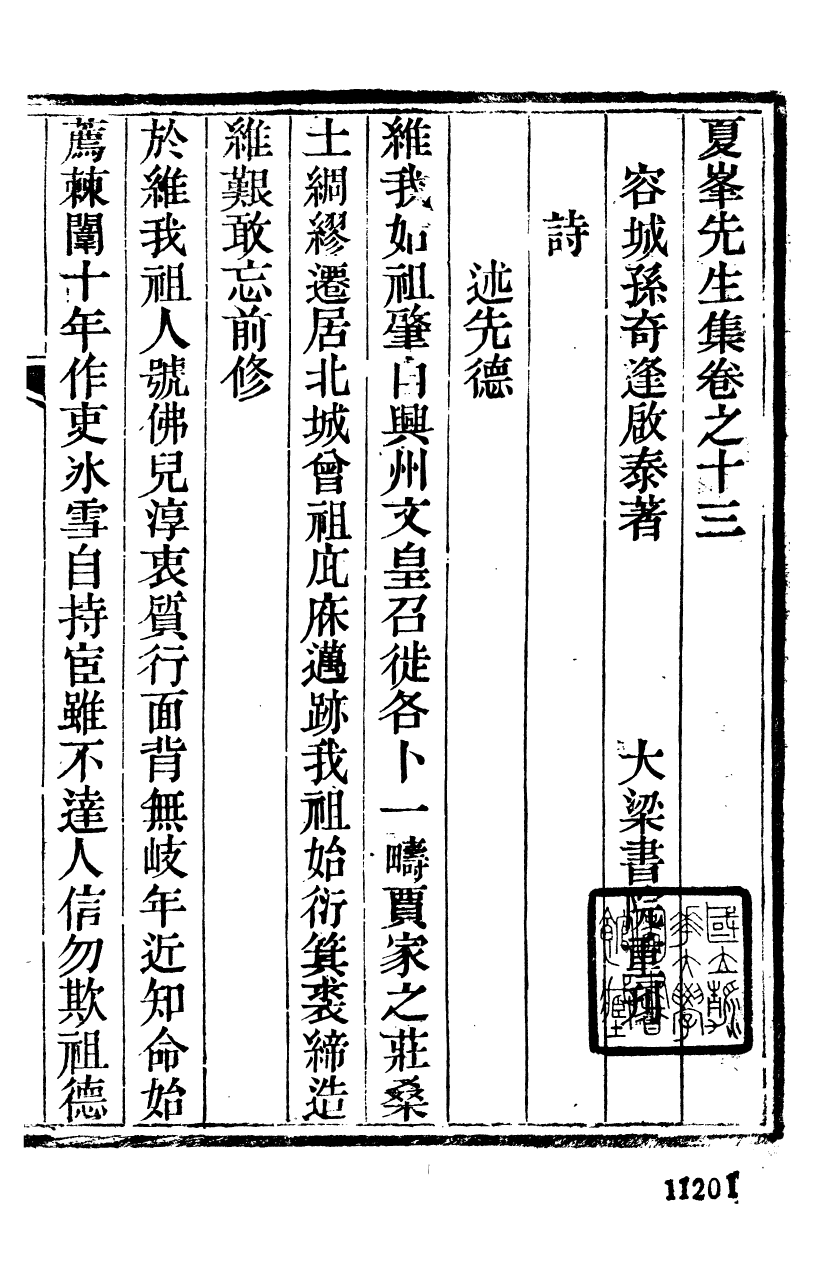 夏峯先生集卷之十三
容城孫奇逢啟泰著　大梁書院重刊
詩
述先德
維我始祖肇自興州文皇召徙各卜一疇賈家之莊桑
土綢繆遷居北城曾祖庇庥邁跡我祖始衍箕裘締造
維艱敢忘前修
於維我祖人號佛兒淳衷質行面背無岐年近知命始
薦棘闈十年作吏氷雪自持宦雖不達人信勿欺祖德
國立清華大學圖書館藏
11201